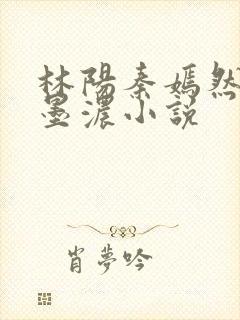 林陽秦嫣然
墨濃小說
肖夢吟